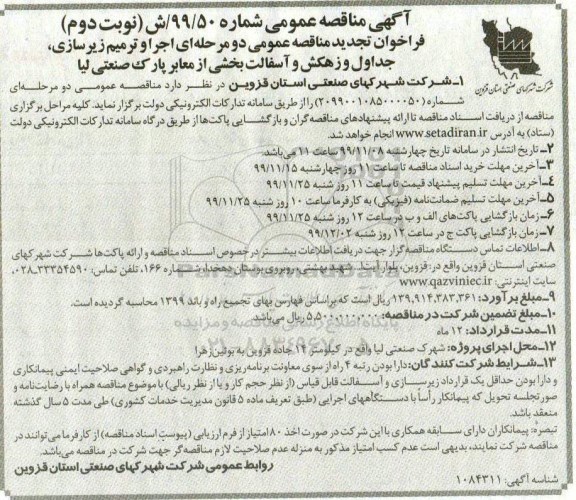 آگهی مناقصه عمومی شماره ۹۹/۵۰/ش (نوبت دوم)
فراخوان تجدید مناقصه عمومی دو مرحله‌ای اجرا و ترمیم زیرسازی،
جداول و زهکش و آسفالت بخشی از معابر پارک صنعتی لیا
شرکت شهرکهای صنعتی استان قزوین
۱- شرکت شهرکهای صنعتی استان قزوین در نظر دارد مناقصه عمومی دو مرحله‌ای
شماره (۲۰۹۹۰۰۱۰۸۵۰۰۰۰۵۰) را از طریق سامانه تدارکات الکترونیکی دولت برگزار نماید. کلیه مراحل برگزاری
مناقصه از دریافت اسناد مناقصه تا ارائه پیشنهادهای مناقصه‌گران و بازگشایی پاکت‌ها از طریق درگاه سامانه تدارکات الکترونیکی دولت
(ستاد) به آدرس www.setadiran.ir انجام خواهد شد.
۲- تاریخ انتشار در سامانه تاریخ چهارشنبه ۹۹/۱۱/۰۸ ساعت ۱۱ می‌باشد.
۳- آخرین مهلت خرید اسناد مناقصه تا ساعت ۱۱ روز چهارشنبه ۹۹/۱۱/۱۵
۴- آخرین مهلت تسلیم پیشنهاد قیمت تا ساعت ۱۱ روز شنبه ۹۹/۱۱/۲۵
۵- آخرین مهلت تسلیم ضمانت‌نامه (فیزیکی) به کارفرما ساعت ۱۰ روز شنبه ۹۹/۱۱/۲۵
۶- زمان بازگشایی پاکت‌های الف و ب در ساعت ۱۲ روز شنبه ۹۹/۱۱/۲۵
۷- زمان بازگشایی پاکت ج در ساعت ۱۲ روز شنبه ۹۹/۱۲/۰۲
۸- اطلاعات تماس دستگاه مناقصه‌گزار جهت دریافت اطلاعات بیشتر در خصوص اسناد مناقصه و ارائه پاکت‌ها شرکت شهرکهای
صنعتی استان قزوین واقع در: قزوین، بلوار آیت ا... شهید بهشتی، روبروی بوستان دهخدا، شماره ۱۶۶، تلفن تماس: ۳۳۳۵۴۵۹۰-۰۲۸
سایت اینترنتی: www.qazviniec.ir
۹- مبلغ برآورد: ۱۳۹,۹۱۴,۳۸۳,۳۶۱ ریال است که براساس فهارس بهای تجمیع راه و باند ۱۳۹۹ محاسبه گردیده است.
۱۰- مبلغ تضمین شرکت در مناقصه: ۵,۵۰۰,۰۰۰,۰۰۰ ریال می‌باشد.
۱۱- مدت قرارداد: ۱۲ ماه
۱۲- محل اجرای پروژه: شهرک صنعتی لیا واقع در کیلومتر ۱۴ جاده قزوین به بوئین‌زهرا
۱۳- شرایط شرکت کنندگان: دارا بودن رتبه ۴ راه از سوی معاونت برنامه‌ریزی و نظارت راهبردی و گواهی صلاحیت ایمنی پیمانکاری
و دارا بودن حداقل یک قرارداد زیرسازی و آسفالت قابل قیاس (از نظر حجم کار و یا از نظر ریالی) با موضوع مناقصه همراه با رضایت‌نامه و
صورتجلسه تحویل که پیمانکار رأساً با دستگاههای اجرایی (طبق تعریف ماده ۵ قانون مدیریت خدمات کشوری) طی مدت ۵ سال گذشته
منعقد باشد.
تبصره: پیمانکاران دارای سابقه همکاری با این شرکت در صورت اخذ ۸۰ امتیاز از فرم ارزیابی (پیوست اسناد مناقصه) از کارفرما می‌توانند در
مناقصه شرکت نمایند، بدیهی است عدم کسب امتیاز مذکور به منزله عدم صلاحیت لازم مناقصه‌گر جهت شرکت در مناقصه می‌باشد.
روابط عمومی شرکت شهرکهای صنعتی استان قزوین
شناسه آگهی: ۱۰۸۴۳۱۱